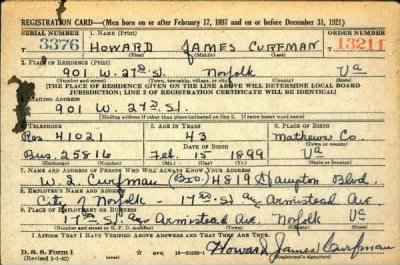 REGISTRATION CARD—(Men born on or after February 17, 1897 and on or before December 31, 1921)
SERIAL NUMBER 1. NAME (Print) ORDER NUMBER
3376 HOWARD JAMES CURFMAN 13211
(First) (Middle) (Last)
2. PLACE OF RESIDENCE (Print)
901 W. 27th St. Norfolk Va
(Number and street) (Town, township, village, or city) (County) (State)
[THE PLACE OF RESIDENCE GIVEN ON THE LINE ABOVE WILL DETERMINE LOCAL BOARD
JURISDICTION; LINE 2 OF REGISTRATION CERTIFICATE WILL BE IDENTICAL]
3. MAILING ADDRESS
901 W. 27th St.
[Mailing address if other than place indicated on line 2. If same insert word same]
4. TELEPHONE 5. AGE IN YEARS 6. PLACE OF BIRTH
Res 41021 43 Mathews Co.
DATE OF BIRTH (Town or county)
Bus. 25816 Feb. 15 1899 Va
(Mo.) (Day) (Yr.) (State or country)
7. NAME AND ADDRESS OF PERSON WHO WILL ALWAYS KNOW YOUR ADDRESS
W. L. Curfman (Bro) 4819 Hampton Blvd.
8. EMPLOYER'S NAME AND ADDRESS
City of Norfolk - 17th St. Armistead Ave.
9. PLACE OF EMPLOYMENT OR BUSINESS
17th St. Armistead Ave. Norfolk Va
(Number and street or R. F. D. number) (Town) (County) (State)
I AFFIRM THAT I HAVE VERIFIED ABOVE ANSWERS AND THAT THEY ARE TRUE.
D. S. S. Form 1 Howard James Curfman
(Revised 1-1-42) (over) (Registrant's signature)